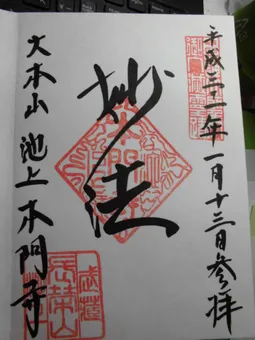 平成三十一年一月十三日参拝
妙法
大本山 池上 本門寺
武蔵
長栄山